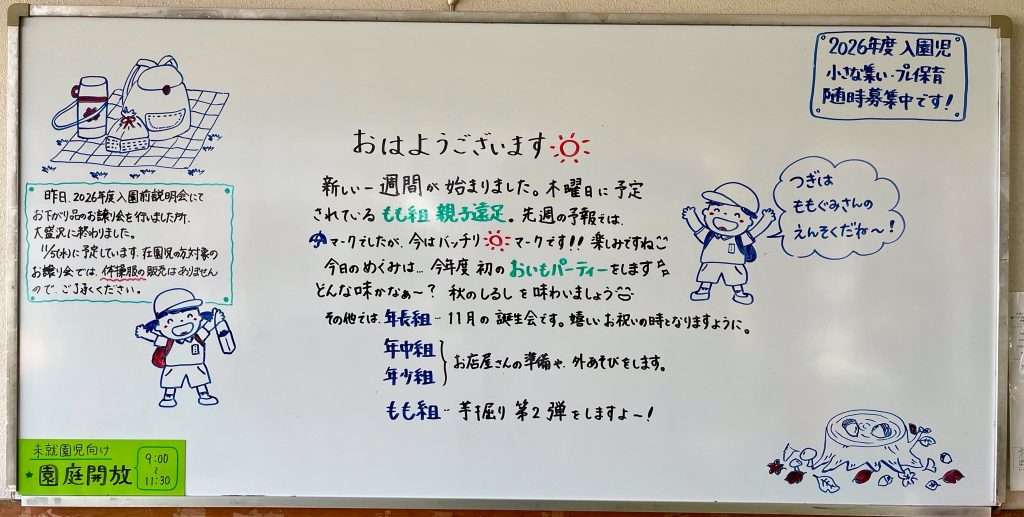 2026年度 入園児
小さな集い・プレ保育
随時募集中です!
おはようございます
新しい一週間が始まりました。木曜日に予定
されている もも組 親子遠足。先週の予報では、
マークでしたが、今はバッチリ マークです!! 楽しみですね
今日のめぐみは… 今年度 初の おいもパーティーをします
どんな味かなぁ〜? 秋のしるしを味わいましょう
その他では、年長組 - 11月の誕生会です。嬉しいお祝いの時となりますように。
年中組
年少組
お店屋さんの準備や、外あそびをします。
もも組 - 芋掘り 第2弾をしますよ〜!
昨日、2026年度入園前説明会にて
お下がり品のお譲り会を行いました所、
大盛況に終わりました。
11/5(水)に予定しています、在園児の方対象の
お譲り会では、体操服の販売はありません
ので、ご了承ください。
つぎは
ももぐみさんの
えんそくだね〜!
未就園児向け
園庭開放
9:00
〜
11:30